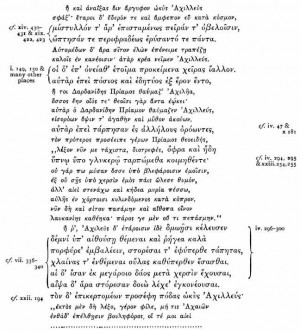 ἦ καὶ ἀναΐξας ὄϊν ἄργυφον ὠκὺς Ἀχιλλεὺς
σφάξ᾽· ἕταροι δ᾽ ἔδερόν τε καὶ ἄμφεπον εὖ κατὰ κόσμον,
cf. xiv. 430–431 & xix. 422, 423
μίστυλλόν τ᾽ ἄρ᾽ ἐπισταμένως πεῖράν τ᾽ ὀβελοῖσιν,
ὤπτησάν τε περιφραδέως ἐρύσαντό τε πάντα.
Αὐτομέδων δ᾽ ἄρα σῖτον ἑλὼν ἐπένειμε τραπέζῃ
καλοῖς ἐν κανέοισιν· ἀτὰρ κρέα νεῖμεν Ἀχιλλεύς.
i. 149, 150 & many other places
οἱ δ᾽ ἐπ᾽ ὀνείαθ᾽ ἑτοῖμα προκείμενα χεῖρας ἴαλλον.
αὐτὰρ ἐπεὶ πόσιος καὶ ἐδητύος ἐξ ἔρον ἕντο,
ἦ τοι Δαρδανίδης Πρίαμος θαύμαζ᾽ Ἀχιλῆα,
ὅσσος ἔην οἷός τε· θεοῖσι γὰρ ἄντα ἐῴκει·
αὐτὰρ ὁ Δαρδανίδην Πρίαμον θαύμαζεν Ἀχιλλεύς,
εἰσορόων ὄψιν τ᾽ ἀγαθὴν καὶ μῦθον ἀκούων.
αὐτὰρ ἐπεὶ τάρπησαν ἐς ἀλλήλους ὁρόωντες,
cf. iv. 47 & x. 181
τὸν πρότερος προσέειπε γέρων Πρίαμος θεοειδής,
„λέξον νῦν με τάχιστα, διοτρεφές, ὄφρα καὶ ἤδη
ὕπνῳ ὕπο γλυκερῷ ταρπώμεθα κοιμηθέντες·
cf. iv. 294, 295 & xxiii. 254, 255
οὐ γάρ πω μύσαν ὄσσε ὑπὸ βλεφάροισιν ἐμοῖσιν,
ἐξ οὗ σῇς ὑπὸ χερσὶν ἐμὸς πάϊς ὤλεσε θυμόν,
ἀλλ᾽ αἰεὶ στενάχω καὶ κήδεα μυρία πέσσω,
αὐλῆς ἐν χόρτοισι κυλινδόμενος κατὰ κόπρον.
νῦν δὴ καὶ σίτου πασάμην καὶ αἴθοπα οἶνον
λαυκανίης καθέηκα· πάρος γε μὲν οὔ τι πεπάσμην.“
ἦ ῥ᾽, Ἀχιλεὺς δ᾽ ἑτάροισιν ἰδὲ δμωῇσι κέλευσεν
iv. 296–300
δέμνι᾽ ὑπ᾽ αἰθούσῃ θέμεναι καὶ ῥήγεα καλὰ
cf. vii. 336–340
πορφύρε᾽ ἐμβαλέειν, στορέσαι τ᾽ ἐφύπερθε τάπητας,
χλαίνας τ᾽ ἐνθέμεναι οὔλας καθύπερθεν ἕσασθαι.
αἱ δ᾽ ἴσαν ἐκ μεγάροιο δάος μετὰ χερσὶν ἔχουσαι,
αἶψα δ᾽ ἄρα στόρεσαν δοιὼ λέχε᾽ ἐγκονέουσαι.
cf. xxii. 194
τὸν δ᾽ ἐπικερτομέων προσέφη πόδας ὠκὺς Ἀχιλλεύς·
„ἐκτὸς μὲν δὴ λέξο, γέρον φίλε, μή τις Ἀχαιῶν
ἐνθάδ᾽ ἐπέλθῃσιν βουληφόρος, οἵ τέ μοι αἰεὶ